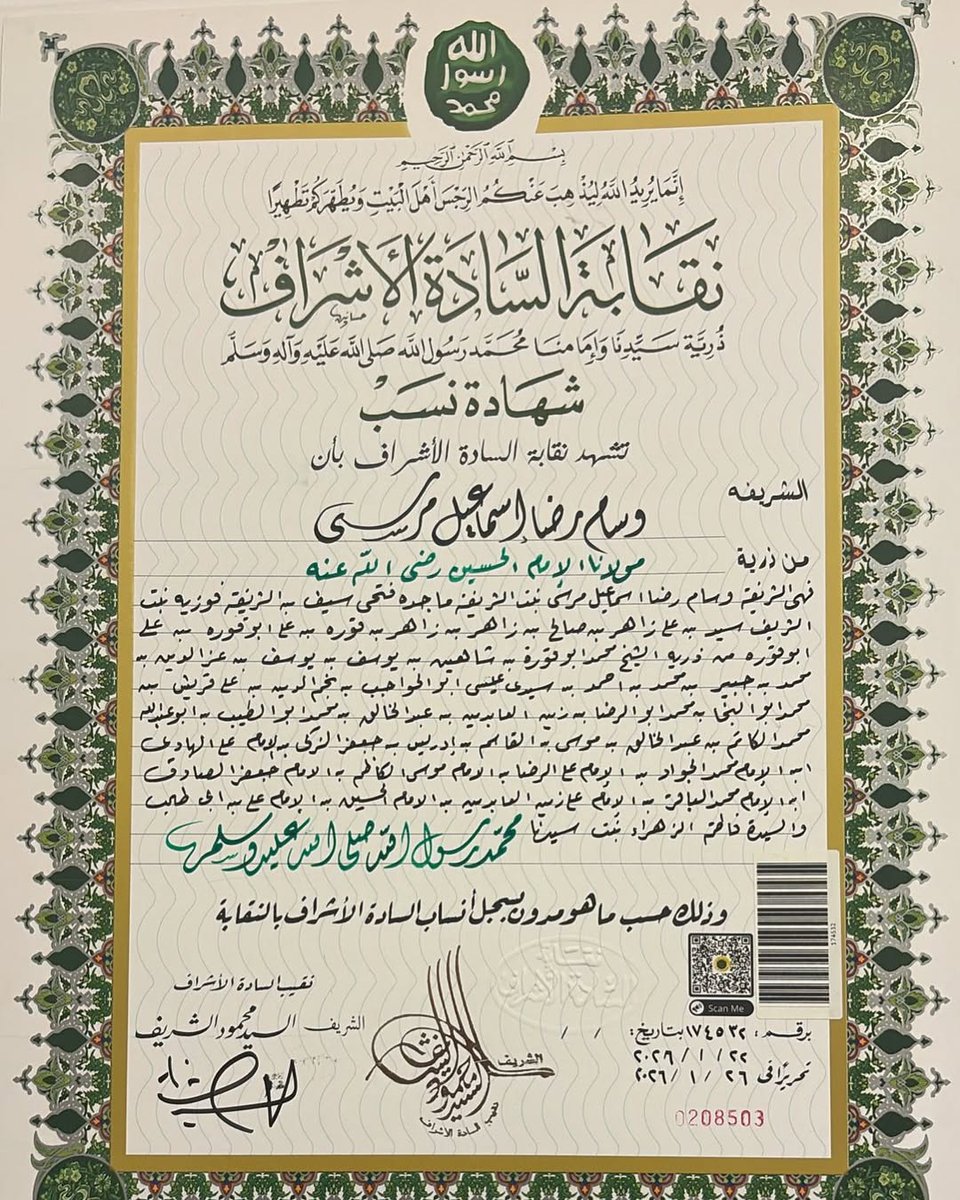 الله
رسول
محمد
بسم الله الرحمن الرحيم
إِنَّمَا يُرِيدُ اللَّهُ لِيُذْهِبَ عَنْكُمُ الرِّجْسَ أَهْلَ الْبَيْتِ وَيُطَهِّرَكُمْ تَطْهِيرًا
نقابة السادة الأشراف
ذرية سيدنا وإمامنا محمد رسول الله صلى الله عليه وآله وسلم
شهادة نسب
تشهد نقابة السادة الأشراف بأن
الشريفه وسام رضا إسماعيل مرسى
من ذرية مولانا الإمام الحسين رضى الله عنه
فهى الشريفة وسام رضا اسماعيل مرسى بنت الشريفه ماجده فتحى سيف بن الشريفة فوزيه بنت
الشريف سيد بن على زاهر بن صالح بن زاهر بن زاهر بن قوره بن على ابو قوره بن على
ابو قوره من ذريه الشيخ محمد ابو قورة بن شاهين بن يوسف بن يوسف بن عز الدين بن
محمد بن جبير بن محمد بن احمد بن سيدى عيسى ابو المواهب بن نجم الدين بن على قريش بن
محمد ابو النجا بن محمد ابو الرضا بن زين العابدين بن عبد الخالق بن محمد ابو الطيب بن ابو عبد الله
محمد الكاتم بن عبد الخالق بن موسى بن القاسم بن إدريس بن جعفر الزكى بن الإمام على الهادى
ابن الإمام محمد الجواد بن الإمام على الرضا بن الامام موسى الكاظم بن الامام جعفر الصادق
ابن الإمام محمد الباقر بن الإمام على زين العابدين بن الامام الحسين بن الإمام على بن ابى طالب
والسيدة فاطمة الزهراء بنت سيدنا محمد رسول الله صلى الله عليه وسلم
وذلك حسب ما هو مدون بسجل أنساب السادة الأشراف بالنقابة
174532
Scan Me
نقابة السادة الأشراف
نقيب السادة الأشراف
الشريف السيد محمود الشريف
الشريف
السيد محمود الشريف
نقيب السادة الأشراف
برقم: ١٧٤٥٣٢ بتاريخ: / /
٢٠٢٦/١/٢٢
تحريرًا فى ٢٠٢٦/١/٢٦
0208503